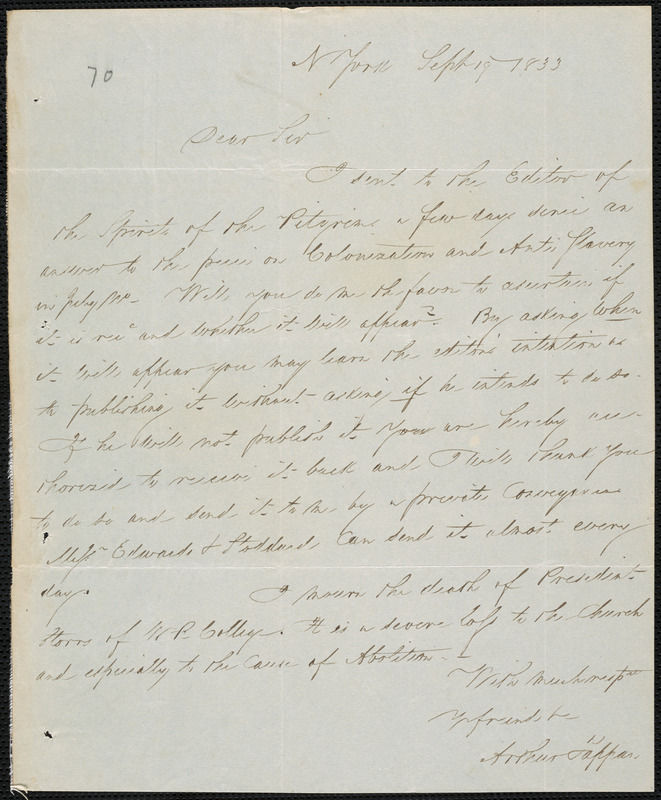 70
N York Sept 19 1833
Dear Sir
I sent to the Editor of
the Spirit of the Pilgrims a few days since an
answer to the piece on Colonization and Anti Slavery
in July No. Will you do me the favor to ascertain if
it is recd and whether it will appear? By asking when
it will appear you may learn the editors intention as
to publishing it without asking if he intends to do so.
If he will not publish it you are hereby au-
thorized to receive it back and I will thank you
to do so and send it to me by a private conveyance
Messrs Edwards & Stoddard can send it almost every
day.
I mourn the death of President
Storrs of W R College. It is a severe loss to the Church
and especially to the cause of Abolition.
With much
Yr friend &c
Arthur Tappan